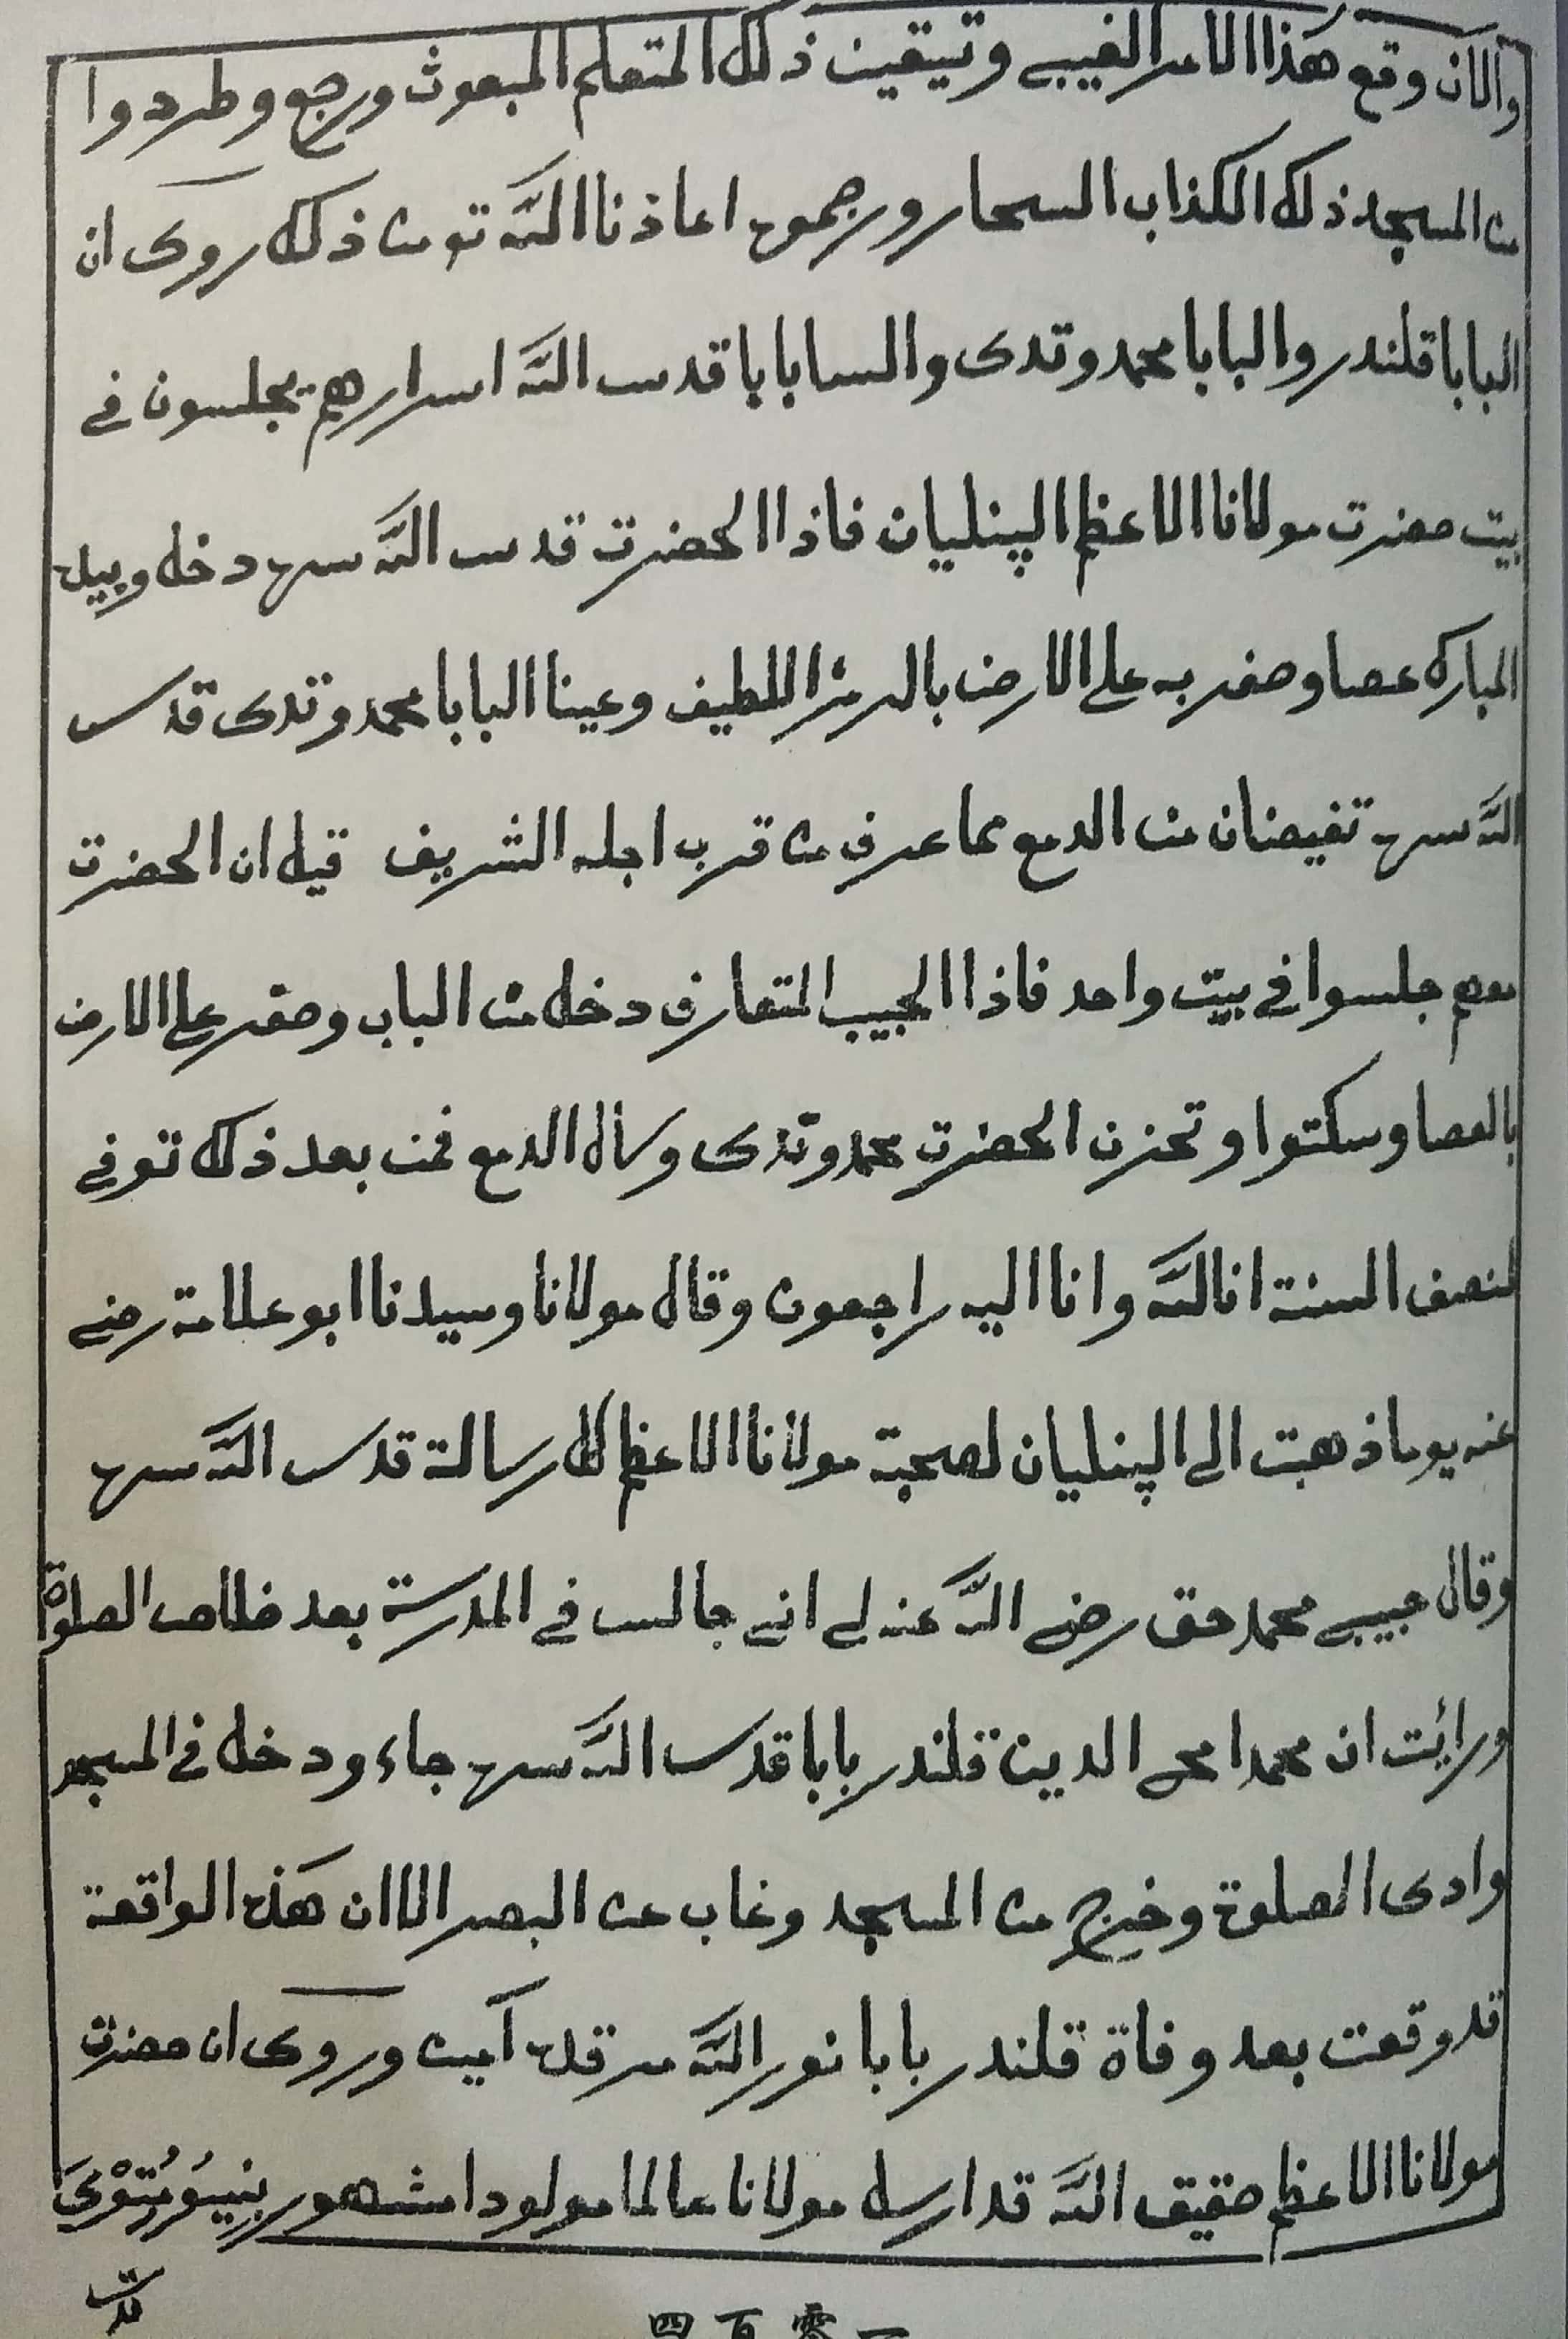 والان وقع هذا الامر الغيبي وتيقين ذلك المتعلم المبعوث ورجع وطردوا
من المسجد ذلك الكذاب السحار ورجموه اعاذنا الله تع من ذلك روى ان
البابا قلندر والبابا محمد وتدى والسابابا قدس الله اسرارهم يجلسون في
بيت حضرت مولانا الاعظم الپنليان فاذا الحضرت قدس الله سره دخل وبيده
المبارك عصا وضرب به على الارض بالرمز اللطيف وعينا البابا محمد وتدى قدس
الله سره تفيضان من الدمع مما عرف من قرب اجله الشريف قيل ان الحضرت
معهم جلسوا في بيت واحد فاذا الحبيب المتعارف دخل من الباب وضرب على الارض
بالعصا وسكتوا وتحزن الحضرت محمد وتدى وسأل الدمع فمن بعد ذلك توفي
لنصف السنة انا لله وانا اليه راجعون وقال مولانا وسيدنا ابو علامة رضي
عنه يوما ذهبت الى الپنليان لصحبة مولانا الاعظم للرسالة قدس الله سره
وقال حبيبي محمد حق رضي الله عنه لي اني جالس في المدرسة بعد خلاص الصلوة
ورايت ان محمدا محي الدين قلندر بابا قدس الله سره جاء ودخل في المسجد
وادى الصلوة وخرج من المسجد وغاب عن البصر الا ان هذه الواقعة
قد وقعت بعد وفاة قلندر بابا نور الله مرقده آمين وروى ان حضرت
مولانا الاعظم حقيق الله قد ارسل مولانا عالما مولودا مشهور
قدس
四百零一